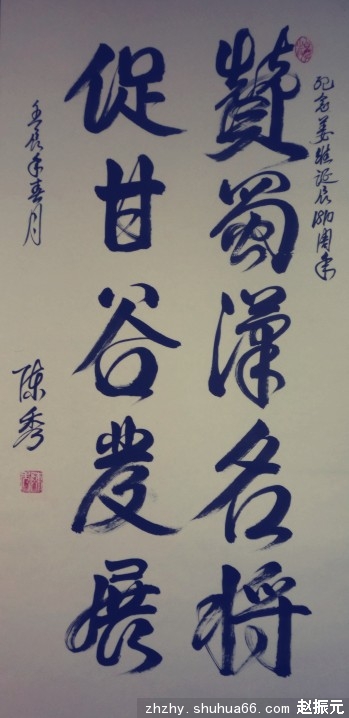 纪念姜维诞辰1810周年
贊蜀漢名将
促甘谷發展
壬辰年春月
陈秀
zhzhy.shuhua66.com 赵振元